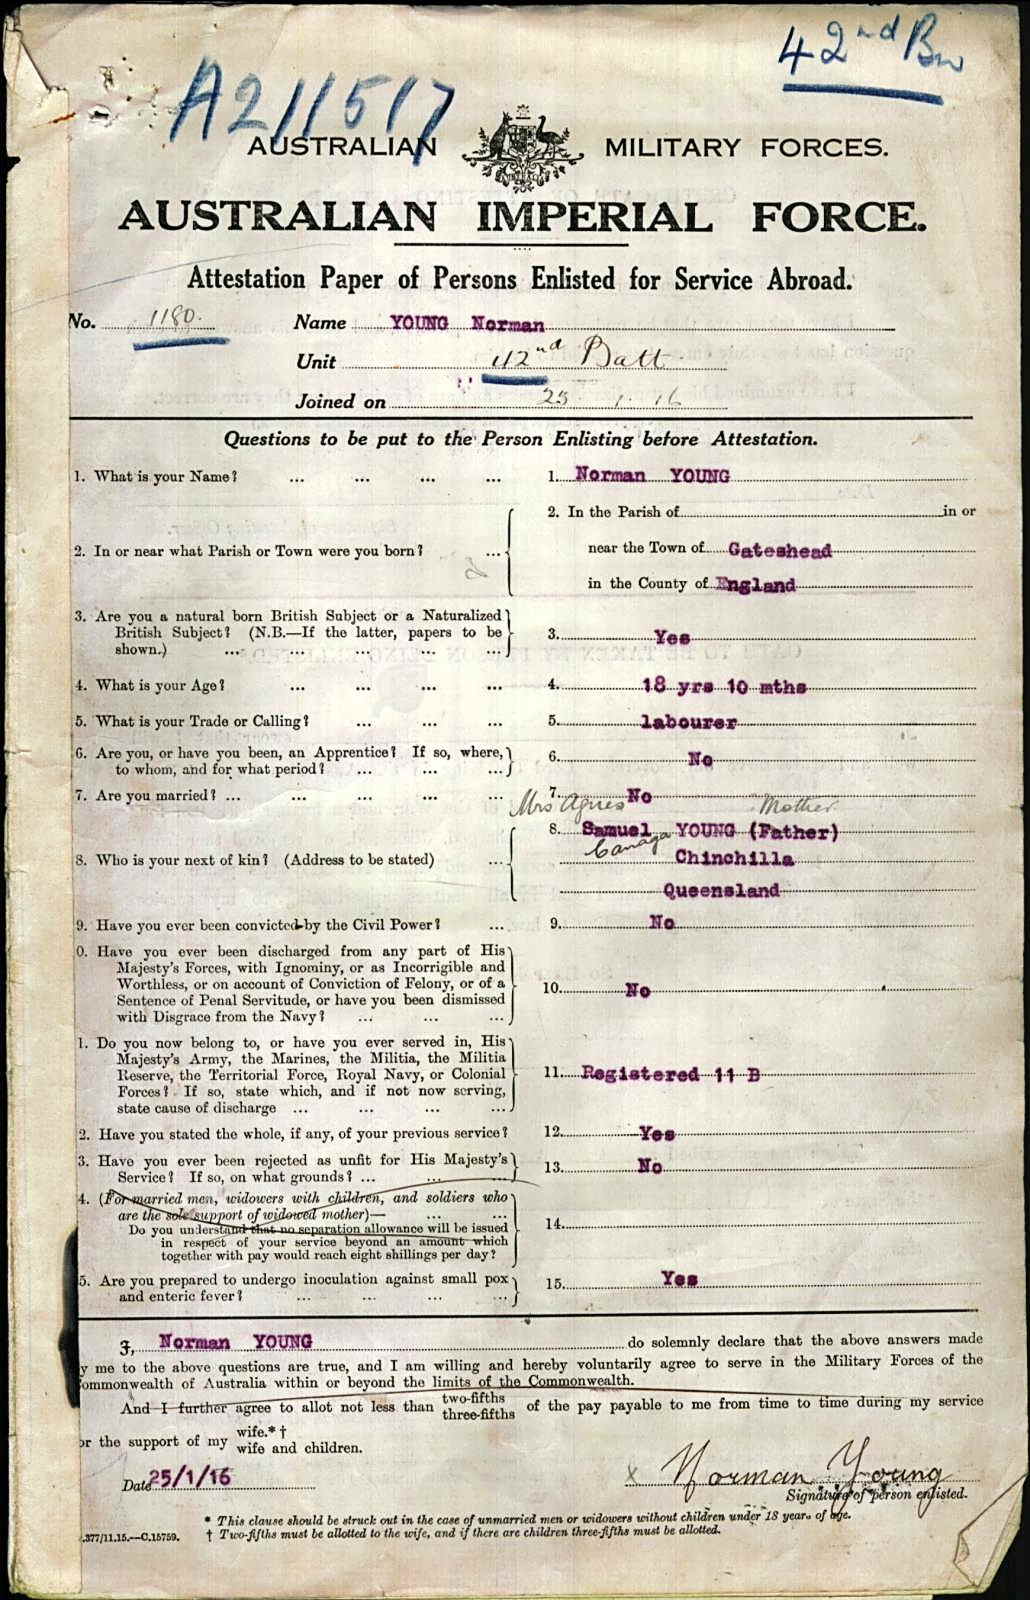 42nd Bn
A211517
AUSTRALIAN MILITARY FORCES.
AUSTRALIAN IMPERIAL FORCE.
Attestation Paper of Persons Enlisted for Service Abroad.
No. 1180. Name YOUNG Norman
Unit 42nd Batt
Joined on 25 . 1 . 16
Questions to be put to the Person Enlisting before Attestation.
1. What is your Name? ... ... ... ... 1. Norman YOUNG
2. In the Parish of in or
2. In or near what Parish or Town were you born? ... near the Town of Gateshead
in the County of England
3. Are you a natural born British Subject or a Naturalized
British Subject? (N.B.—If the latter, papers to be 3. Yes
shown.) ... ... ... ... ...
4. What is your Age? ... ... ... ... 4. 18 yrs 10 mths
5. What is your Trade or Calling? ... ... ... 5. labourer
6. Are you, or have you been, an Apprentice? If so, where, 6. No
to whom, and for what period? ... ... ...
7. Are you married? ... ... ... ... ... 7. No
Mrs Agnes Mother
8. Samuel YOUNG (Father)
8. Who is your next of kin? (Address to be stated) ... Canaga Chinchilla
Queensland
9. Have you ever been convicted by the Civil Power? ... 9. No
0. Have you ever been discharged from any part of His
Majesty's Forces, with Ignominy, or as Incorrigible and
Worthless, or on account of Conviction of Felony, or of a 10. No
Sentence of Penal Servitude, or have you been dismissed
with Disgrace from the Navy? ... ... ...
1. Do you now belong to, or have you ever served in, His
Majesty's Army, the Marines, the Militia, the Militia
Reserve, the Territorial Force, Royal Navy, or Colonial 11. Registered 11 B
Forces? If so, state which, and if not now serving,
state cause of discharge ... ... ... ...
2. Have you stated the whole, if any, of your previous service? 12. Yes
3. Have you ever been rejected as unfit for His Majesty's 13. No
Service? If so, on what grounds? ... ... ...
4. (For married men, widowers with children, and soldiers who
are the sole support of widowed mother)— ... ...
Do you understand that no separation allowance will be issued 14.
in respect of your service beyond an amount which
together with pay would reach eight shillings per day?
5. Are you prepared to undergo inoculation against small pox 15. Yes
and enteric fever? ... ... ... ...
I, Norman YOUNG do solemnly declare that the above answers made
y me to the above questions are true, and I am willing and hereby voluntarily agree to serve in the Military Forces of the
ommonwealth of Australia within or beyond the limits of the Commonwealth.
And I further agree to allot not less than two-fifths three-fifths of the pay payable to me from time to time during my service
or the support of my wife.*† wife and children.
Date 25/1/16 x Norman Young
Signature of person enlisted.
* This clause should be struck out in the case of unmarried men or widowers without children under 18 years of age.
.377/11.15.—C.15759. † Two-fifths must be allotted to the wife, and if there are children three-fifths must be allotted.